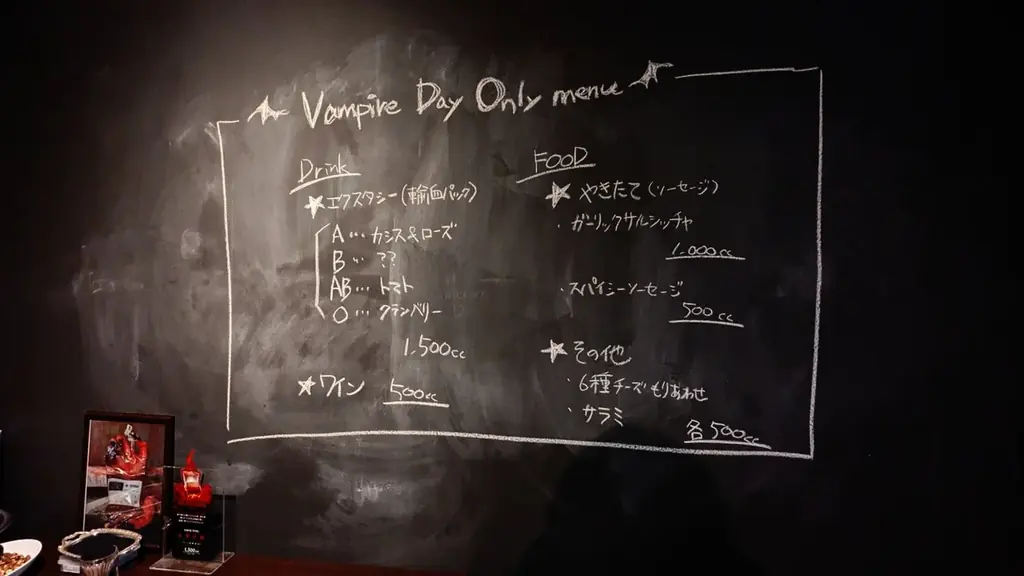 Vampire Day Only menu
Drink
★エクスタシー(輸血パック)
A… カシス&ローズ
B… ??
AB… トマト
O… クランベリー
1,500cc
★ワイン 500cc
FOOD
★ やきたて(ソーセージ)
・ガーリックサルシッチャ
1,000cc
・スパイシーソーセージ
500cc
★その他
・6種チーズもりあわせ
・サラミ
各500cc